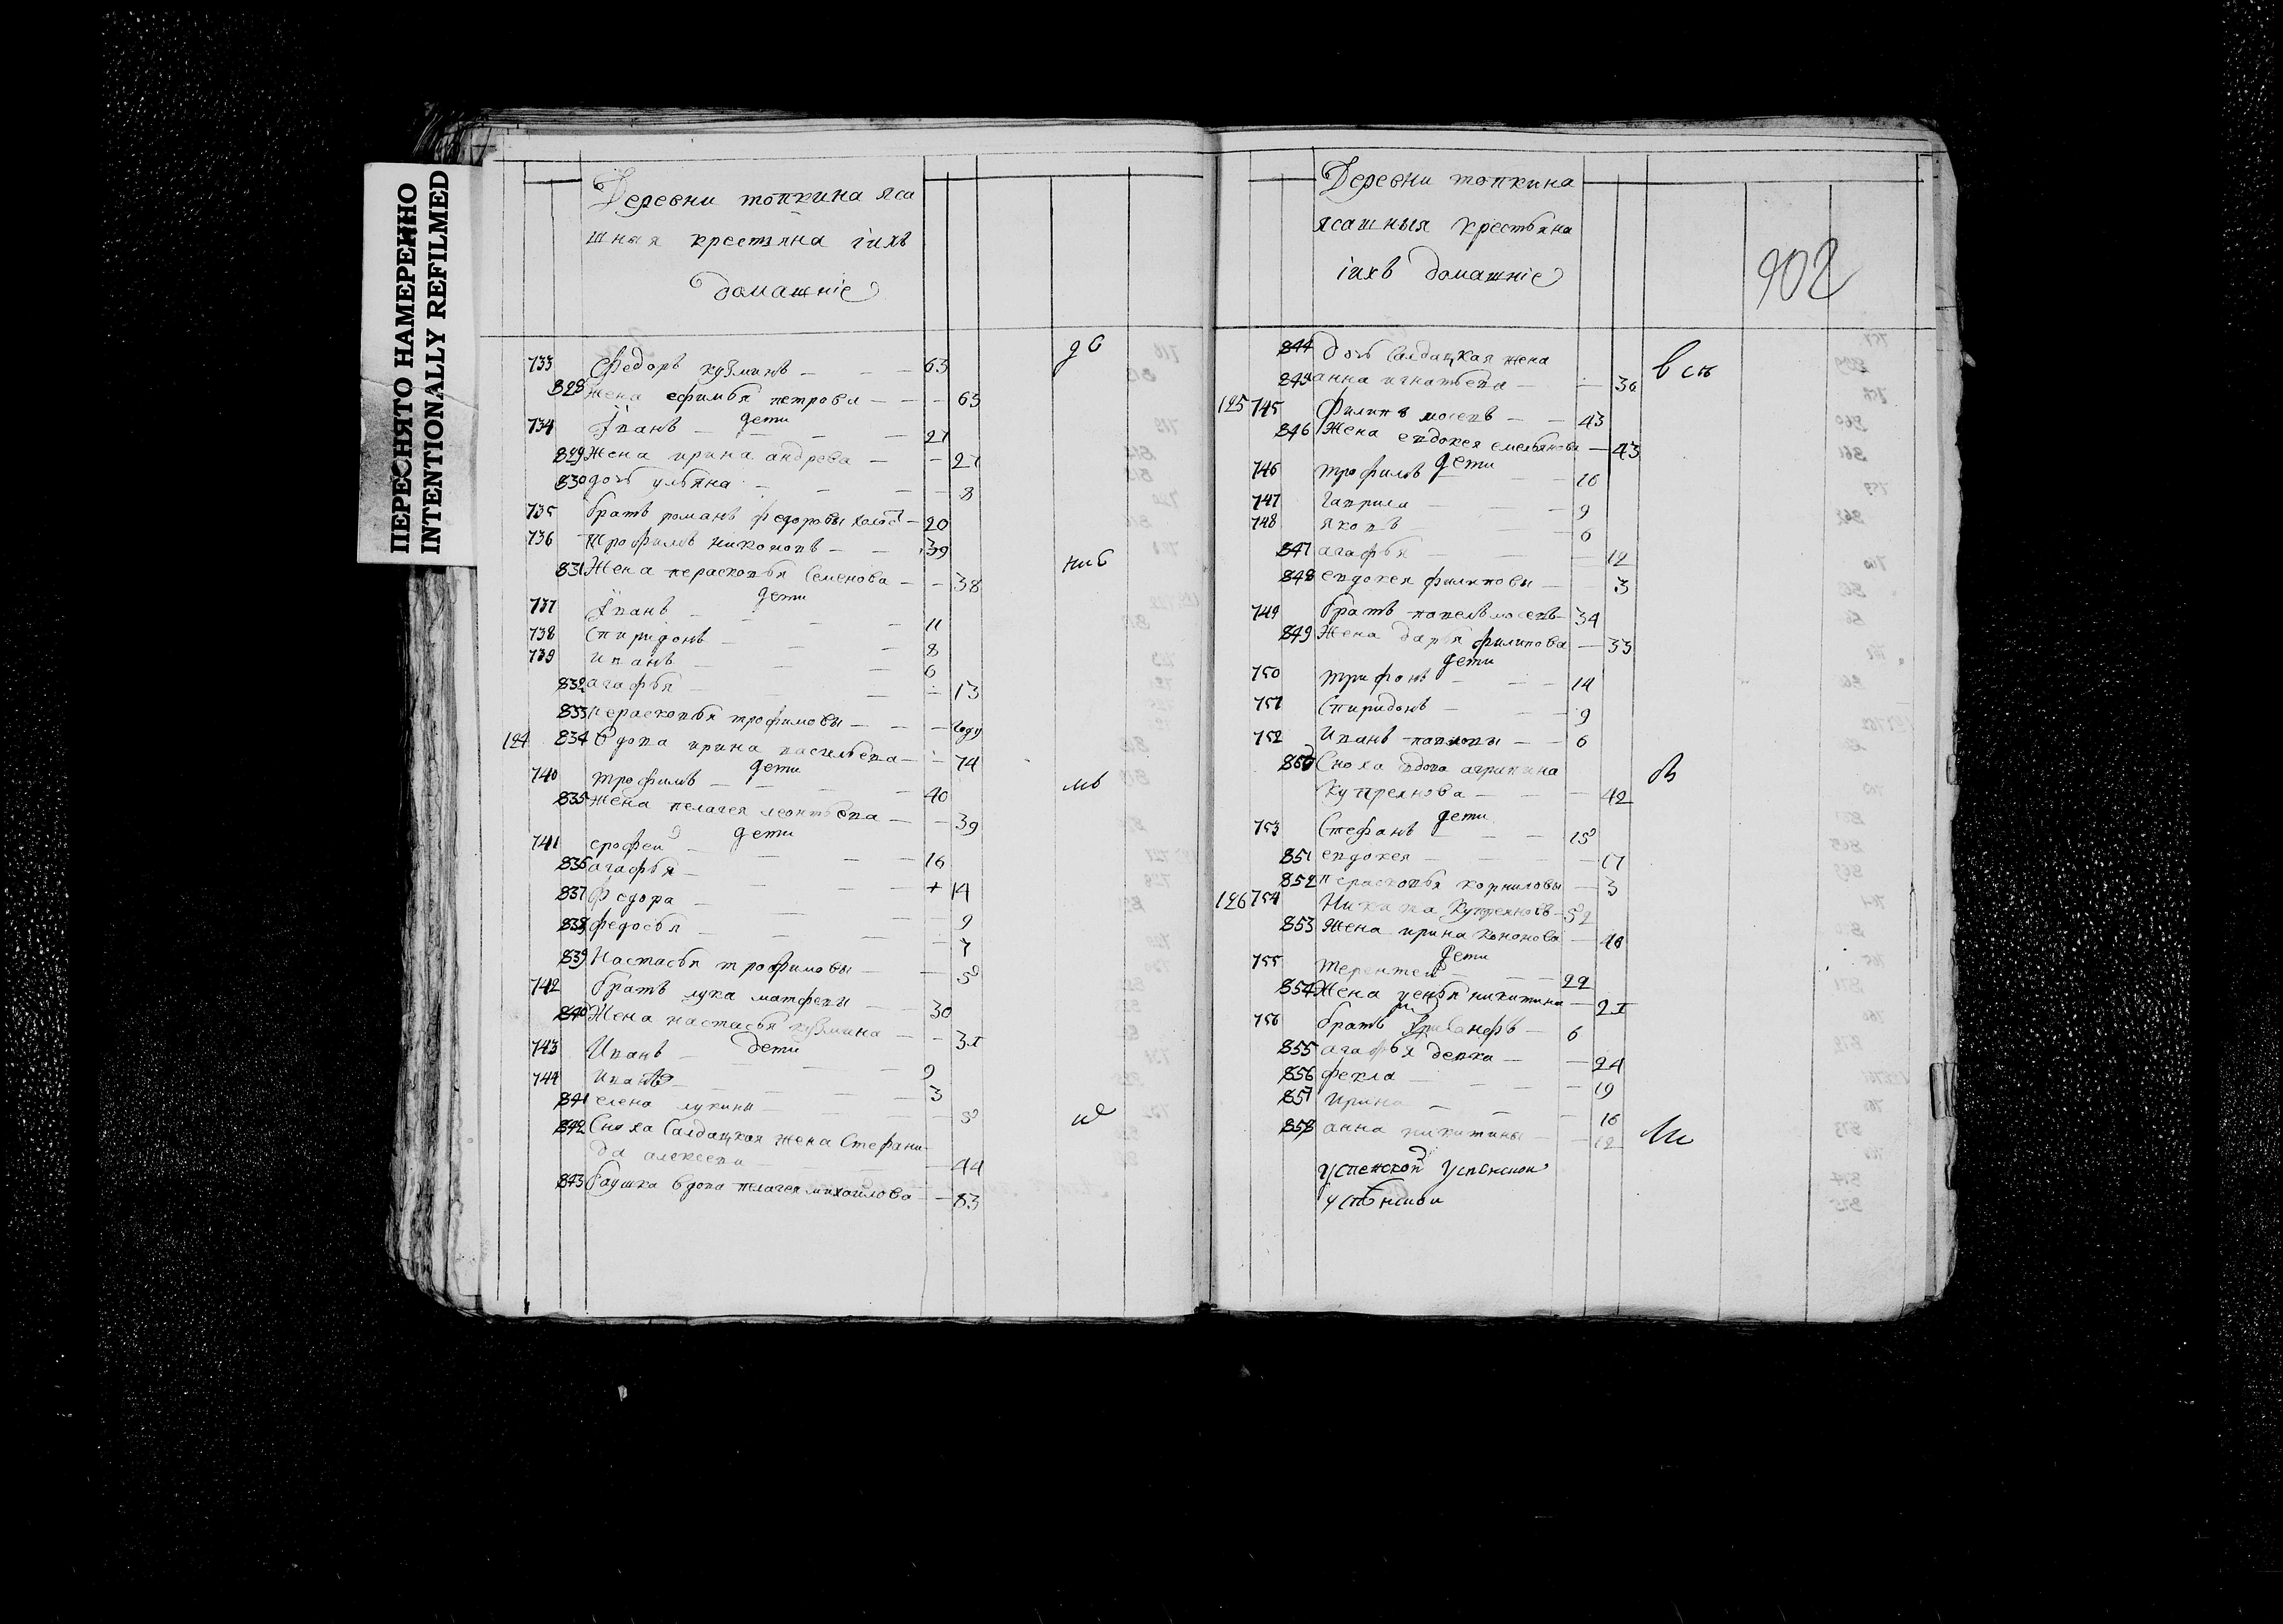 ПЕРЕСНЯТО НАМЕРЕННО
INTENTIONALLY REFILMED
Деревни топкина яса
шныя крестьяна iихъ
домашнiе
733 Федоръ кузминъ — — — 63
828 Жена ефимья петрова — — — 63
дети
734 Iванъ — — — 21
829 Жена ирина андрева — — 21
830 дочь ульяна — — — 8
735 братъ романъ федоровы холост — 20
736 Трофимъ никоновъ — — 39
831 Жена пераскопья Семенова — — 38
дети
737 Iванъ — — — 11
738 Спиридонъ — — — 8
739 иванъ — — — 6
832 агафья — — — 13
833 пераскопья трофимовы — — — году
124 834 вдова ирина васильева — — 74
дети
740 трофимъ — — — 40
835 жена пелагея леонтьева — — 39
дети
741 ерофей — — — 16
836 агафья — — — + 14
837 Федора — — — 9
838 федосья — — — 7
839 Настасья трофимовы — — 5
742 братъ лука матфевы — — 30
840 Жена настасья кузмина — — 31
дети
743 Иванъ — — — 9
744 Иванъ — — — 3
841 елена лукины — — — 5
842 Сноха Салдацкая жена Стефани
да алексева — — 44
843 баушка вдова пелагея михаилова — — 83
Деревни топкина
ясашныя крестьяна
iихъ домашнiе
902
844 дочь Салдацкая жена
845 анна игнатьева — — 36
125 745 Филипъ мосевъ — — 43
846 Жена евдокея емельянова — 43
дети
746 трофимъ — — — 16
747 гаврила — — — 9
748 яковъ — — — 6
847 агафья — — — 12
848 евдокея филиповы — — 3
749 братъ павелъ мосевъ — 34
849 Жена дарья филипова — 33
дети
750 трифонъ — — — 14
751 Спиридонъ — — — 9
752 Иванъ павловы — — 6
850 Сноха вдова аграпина
Купреянова — — — 42
дети
753 Стефанъ — — — 15
851 евдокея — — — 17
852 пераскопья корниловы — 3
126 754 Никита Купреяновъ — 52
853 Жена ирина кононова — 48
дети
755 терентей — — — 22
854 Жена никитина — 21
756 братъ — 6
855 агафья девка — — 24
856 фекла — — — 19
857 Ирина — — 16
858 анна никитины — — 12
успенской